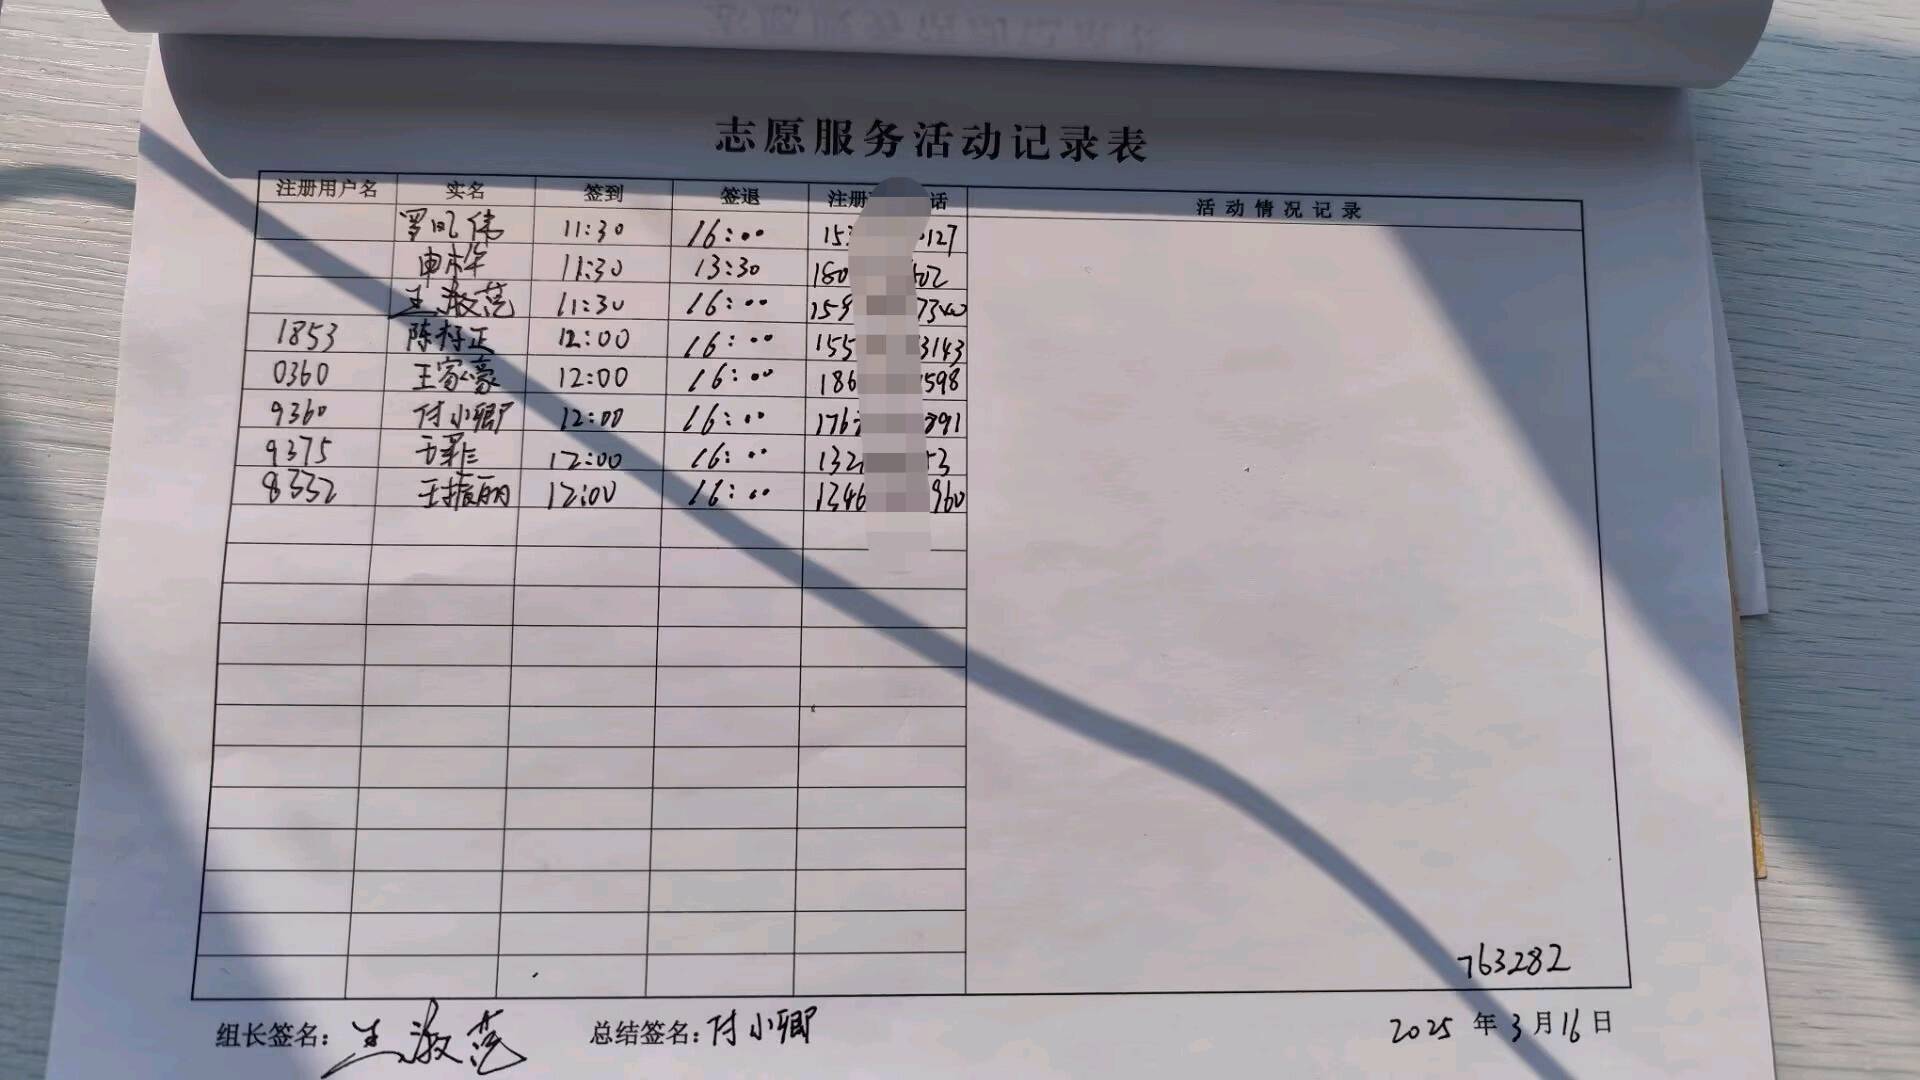 志愿服务活动记录表
注册用户名 实名 签到 签退 注册 话 活动情况记录
11:30 16:00 15 127
申 11:30 13:30 180 02
王淑范 11:30 16:00 159
1853 陈 正 12:00 16:00 155 3143
0360 王家豪 12:00 16:00 186 598
9360 付小卿 12:00 16:00 176 891
9375 12:00 16:00 132 3
8332 王振丽 12:00 16:00 1346 960
763282
组长签名: 王淑范 总结签名: 付小卿 2025 年 3 月 16 日